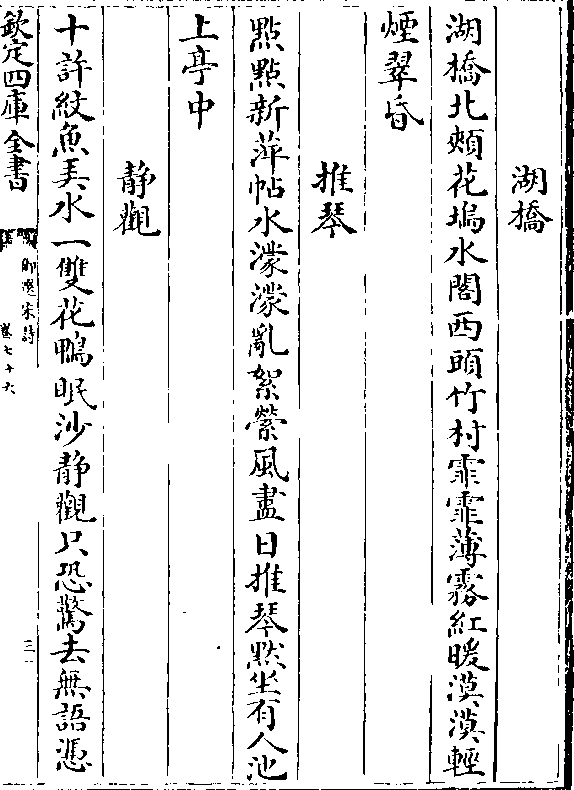 湖橋
湖橋北頰花塢水閣西頭竹村霏霏薄霧紅暖漠漠輕
煙翠昏
推琴
點點新萍帖水濛濛亂絮縈風盡日推琴默坐有人池
上亭中
静觀
十許紋魚弄水一雙花鴨眠沙静觀只恐驚去無語憑
欽定四庫全書
御選宋詩
卷七十六
三